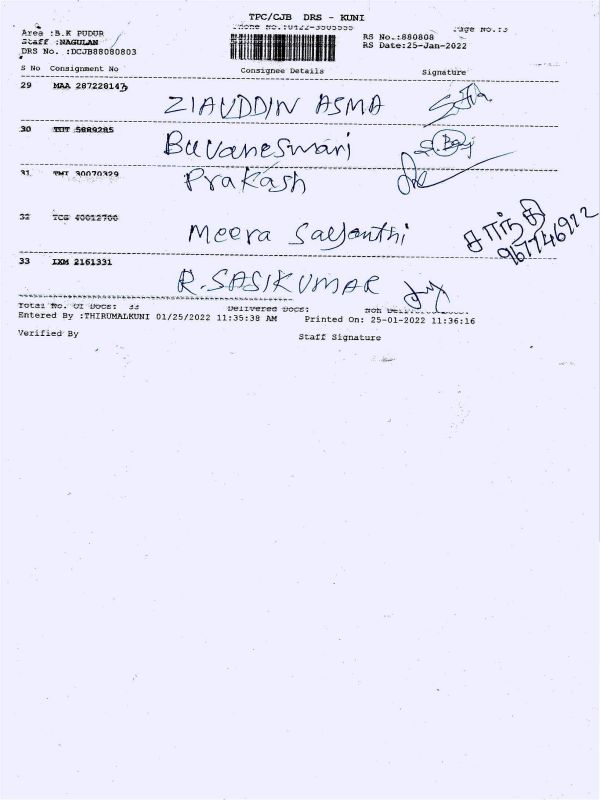 TPC/CJB DRS - KUNI
Area :B.K PUDUR Page No.:3
Staff :NAGULAN RS No.:880808
DRS No. :DCJB88080803 RS Date:25-Jan-2022
S No Consignment No Consignee Details Signature
29 MAA 287228147 ZIAUDDIN ASMA
30 5889285 Buvaneswari
31 TMT 30070329 Prakash
32 TCG 40012706 Meera சாந்தி
33 IXM 2161331 R. SASIKUMAR
Total No. Of Docs: 33 Delivered Docs:
Entered By :THIRUMALKUNI 01/25/2022 11:35:38 AM Printed On: 25-01-2022 11:36:16
Verified By Staff Signature